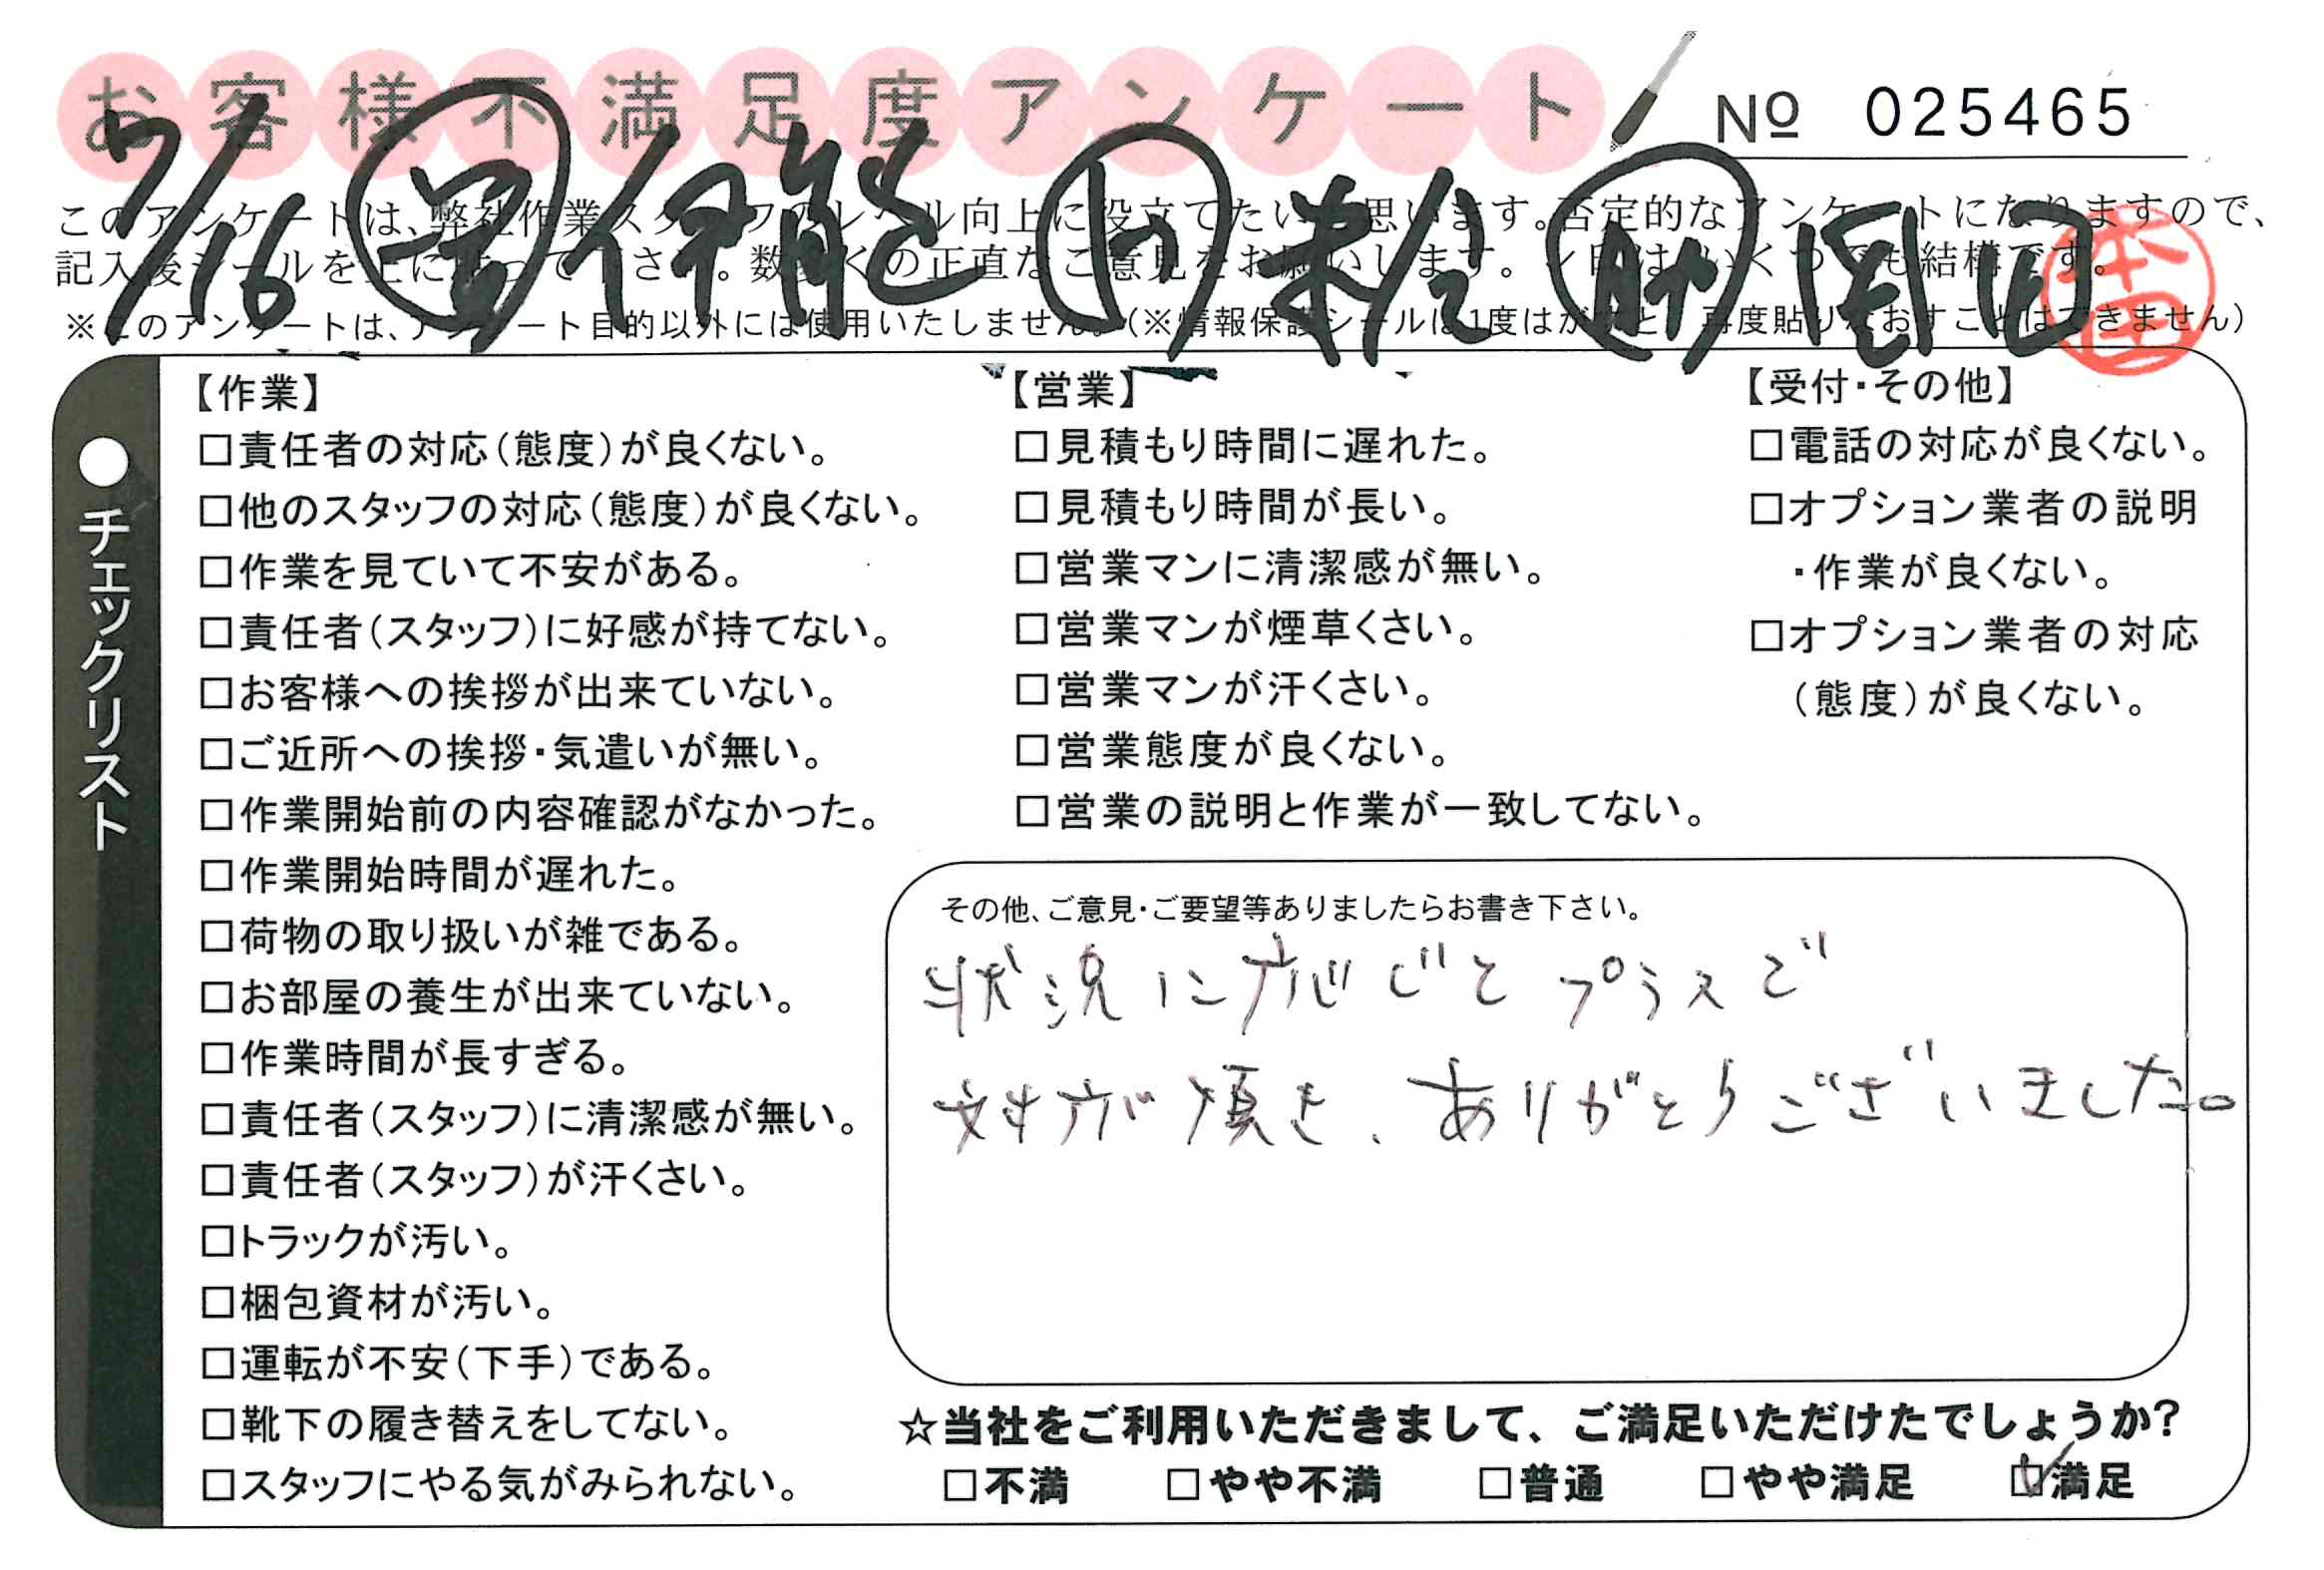 お客様不満足度アンケート
No 025465
7/16 伊能 岡田
本田
このアンケートは、弊社作業スタッフのレベル向上に役立てたいと思います。否定的なアンケートになりますので、
記入後シールを上に貼って下さい。数多くの正直なご意見をお願いします。✓印はいくつでも結構です。
※このアンケートは、アンケート目的以外には使用いたしません。（※情報保護シールは1度はがすと、再度貼りなおすことはできません）
●チェックリスト
【作業】
□責任者の対応（態度）が良くない。
□他のスタッフの対応（態度）が良くない。
□作業を見ていて不安がある。
□責任者（スタッフ）に好感が持てない。
□お客様への挨拶が出来ていない。
□ご近所への挨拶・気遣いが無い。
□作業開始前の内容確認がなかった。
□作業開始時間が遅れた。
□荷物の取り扱いが雑である。
□お部屋の養生が出来ていない。
□作業時間が長すぎる。
□責任者（スタッフ）に清潔感が無い。
□責任者（スタッフ）が汗くさい。
□トラックが汚い。
□梱包資材が汚い。
□運転が不安（下手）である。
□靴下の履き替えをしてない。
□スタッフにやる気がみられない。
【営業】
□見積もり時間に遅れた。
□見積もり時間が長い。
□営業マンに清潔感が無い。
□営業マンが煙草くさい。
□営業マンが汗くさい。
□営業態度が良くない。
□営業の説明と作業が一致してない。
【受付・その他】
□電話の対応が良くない。
□オプション業者の説明
・作業が良くない。
□オプション業者の対応
（態度）が良くない。
その他、ご意見・ご要望等ありましたらお書き下さい。
状況に応じてプラスで
対応頂き、ありがとうございました。
☆当社をご利用いただきまして、ご満足いただけたでしょうか?
□不満 □やや不満 □普通 □やや満足 ☑満足